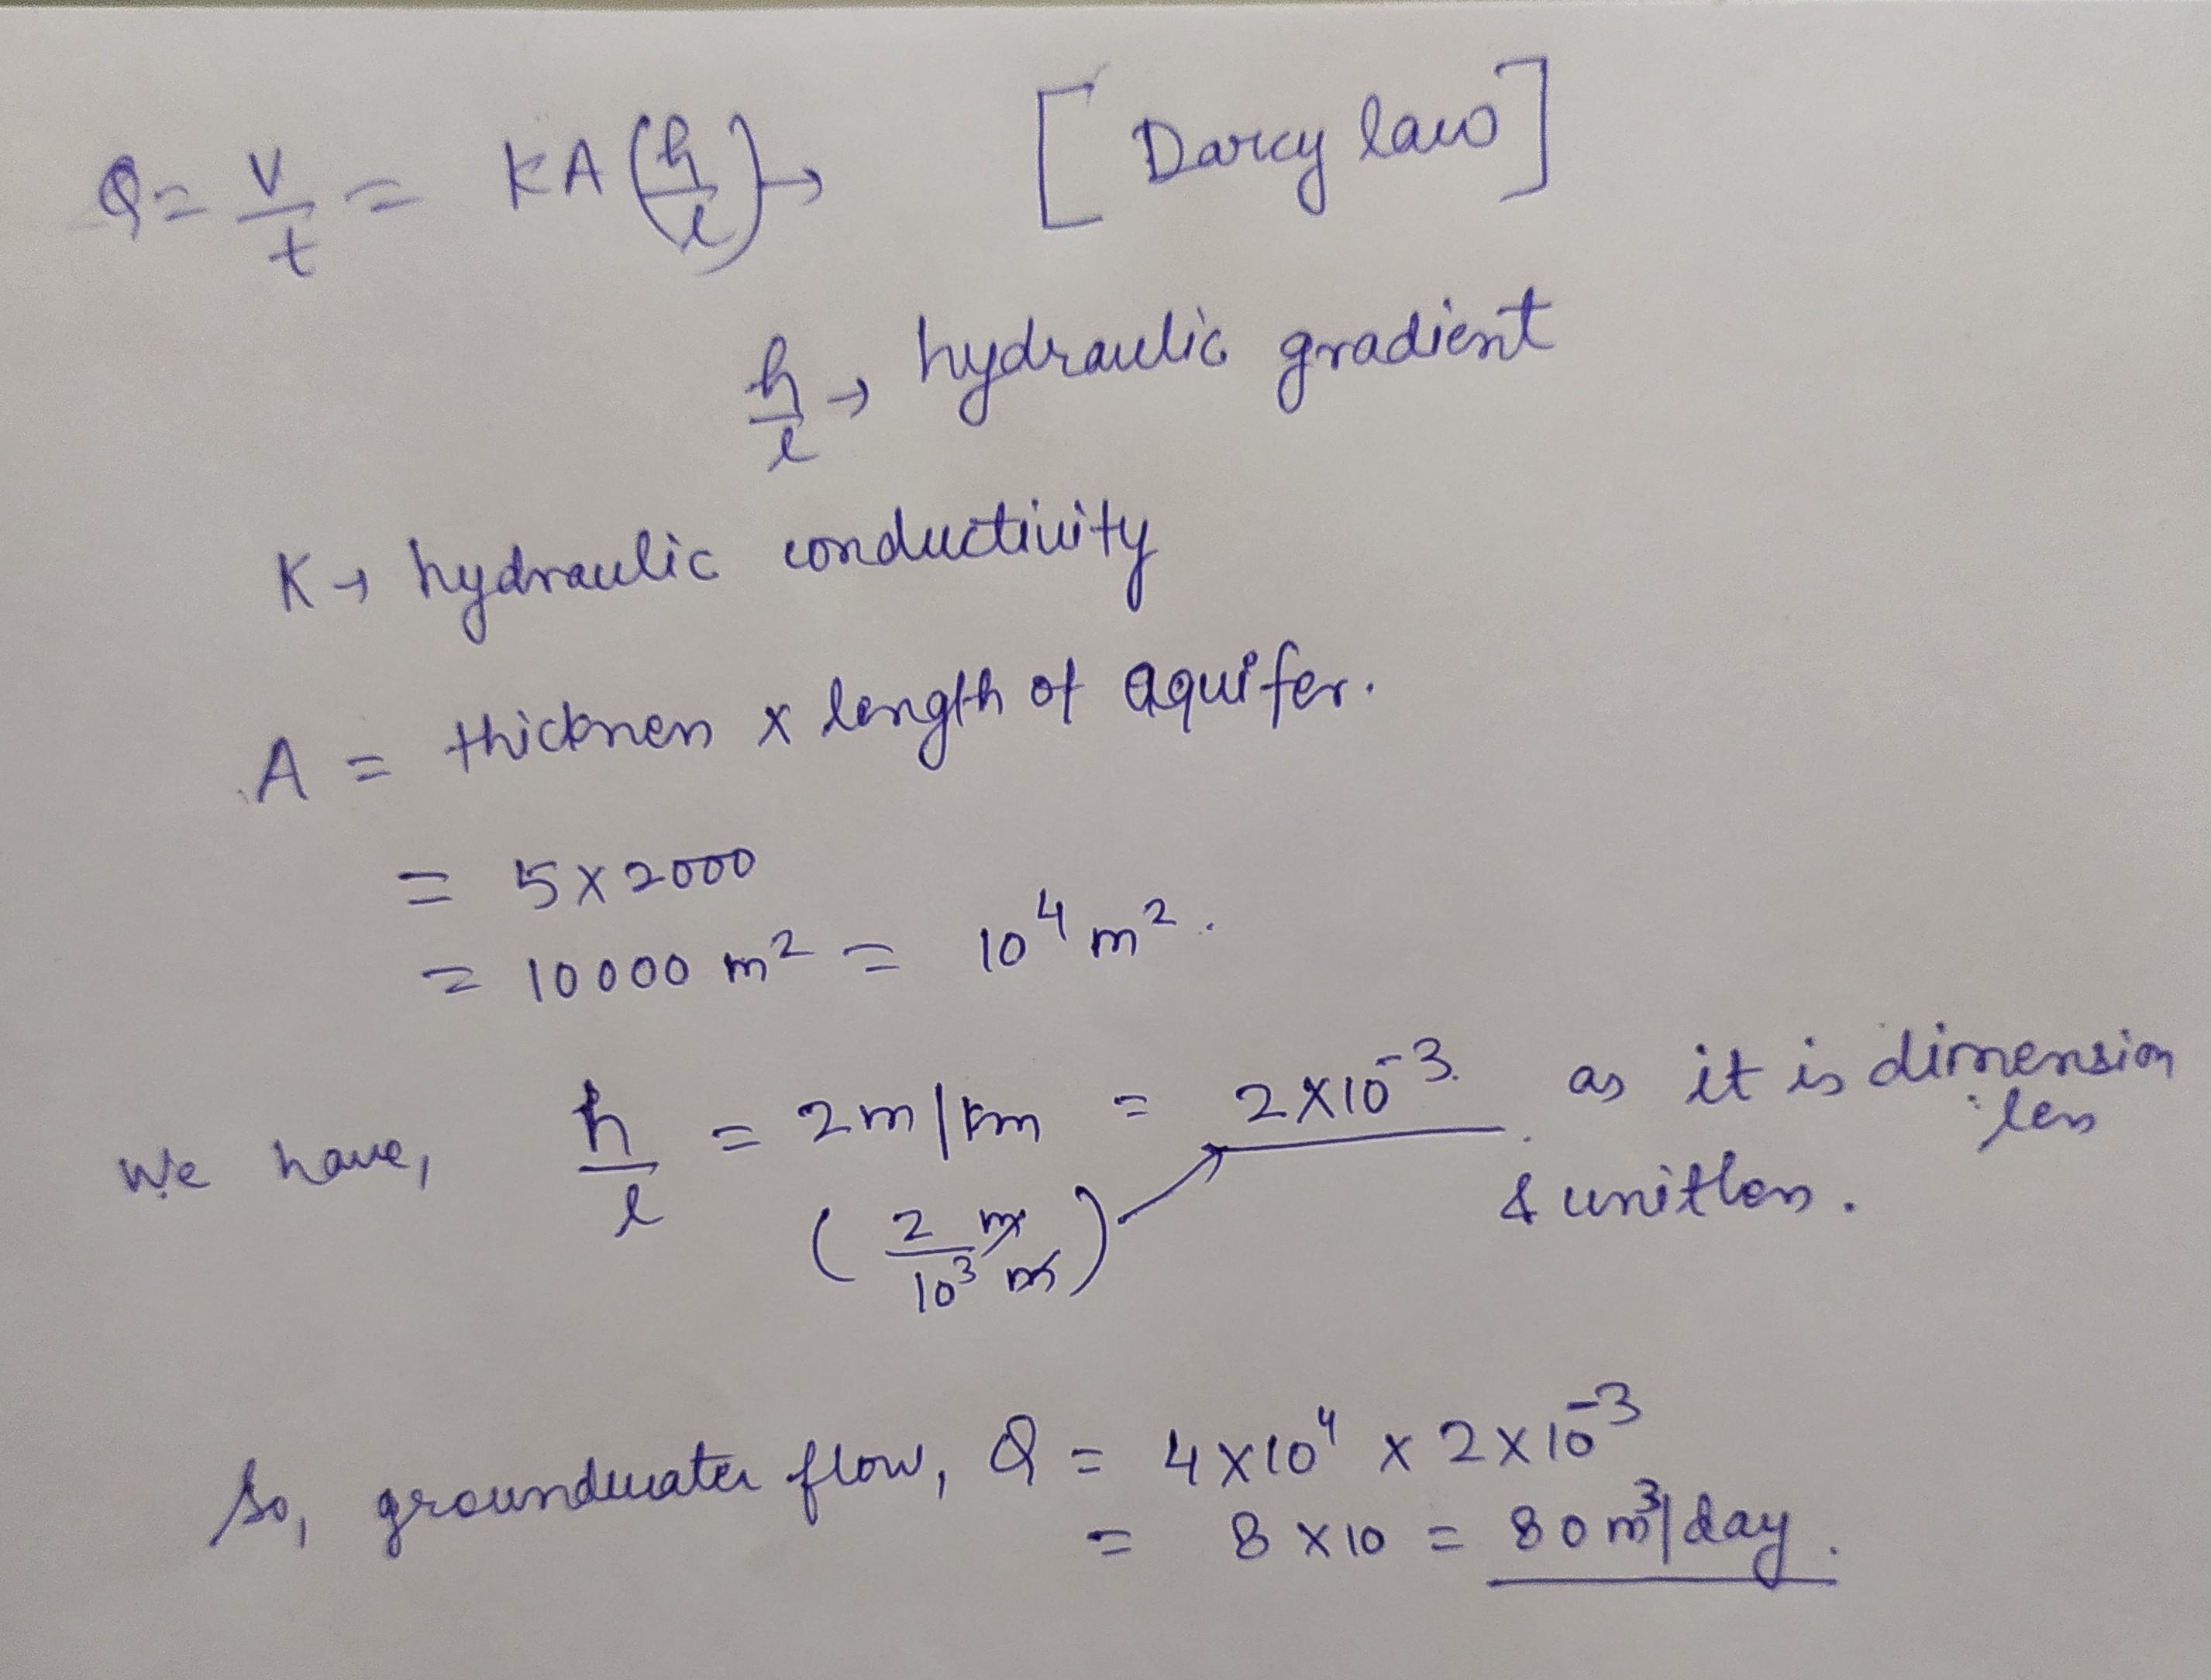 Q = V/t = KA(h/l) → [Darcy law]
h/l → hydraulic gradient
K → hydraulic conductivity
A = thickness x length of aquifer.
= 5 x 2000
= 10000 m² = 10⁴ m².
We have, h/l = 2m/km = 2x10⁻³. as it is dimension
less
(2 m/10³ m) → & unitless.
So, groundwater flow, Q = 4x10⁴ x 2x10⁻³
= 8 x 10 = 80 m³/day.